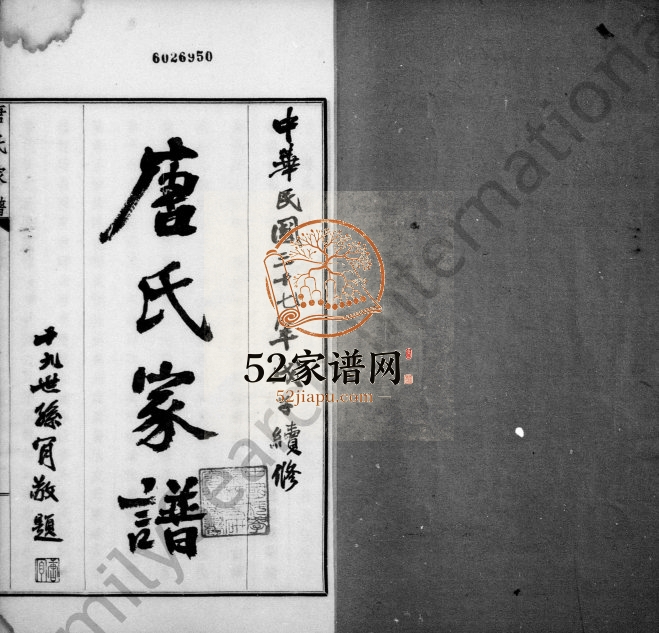 6026950
中華民国三十七年
續修
唐氏家譜
十九世孫肎敬題
唐氏家譜
52家谱网
52jiapu.com
Family Search International